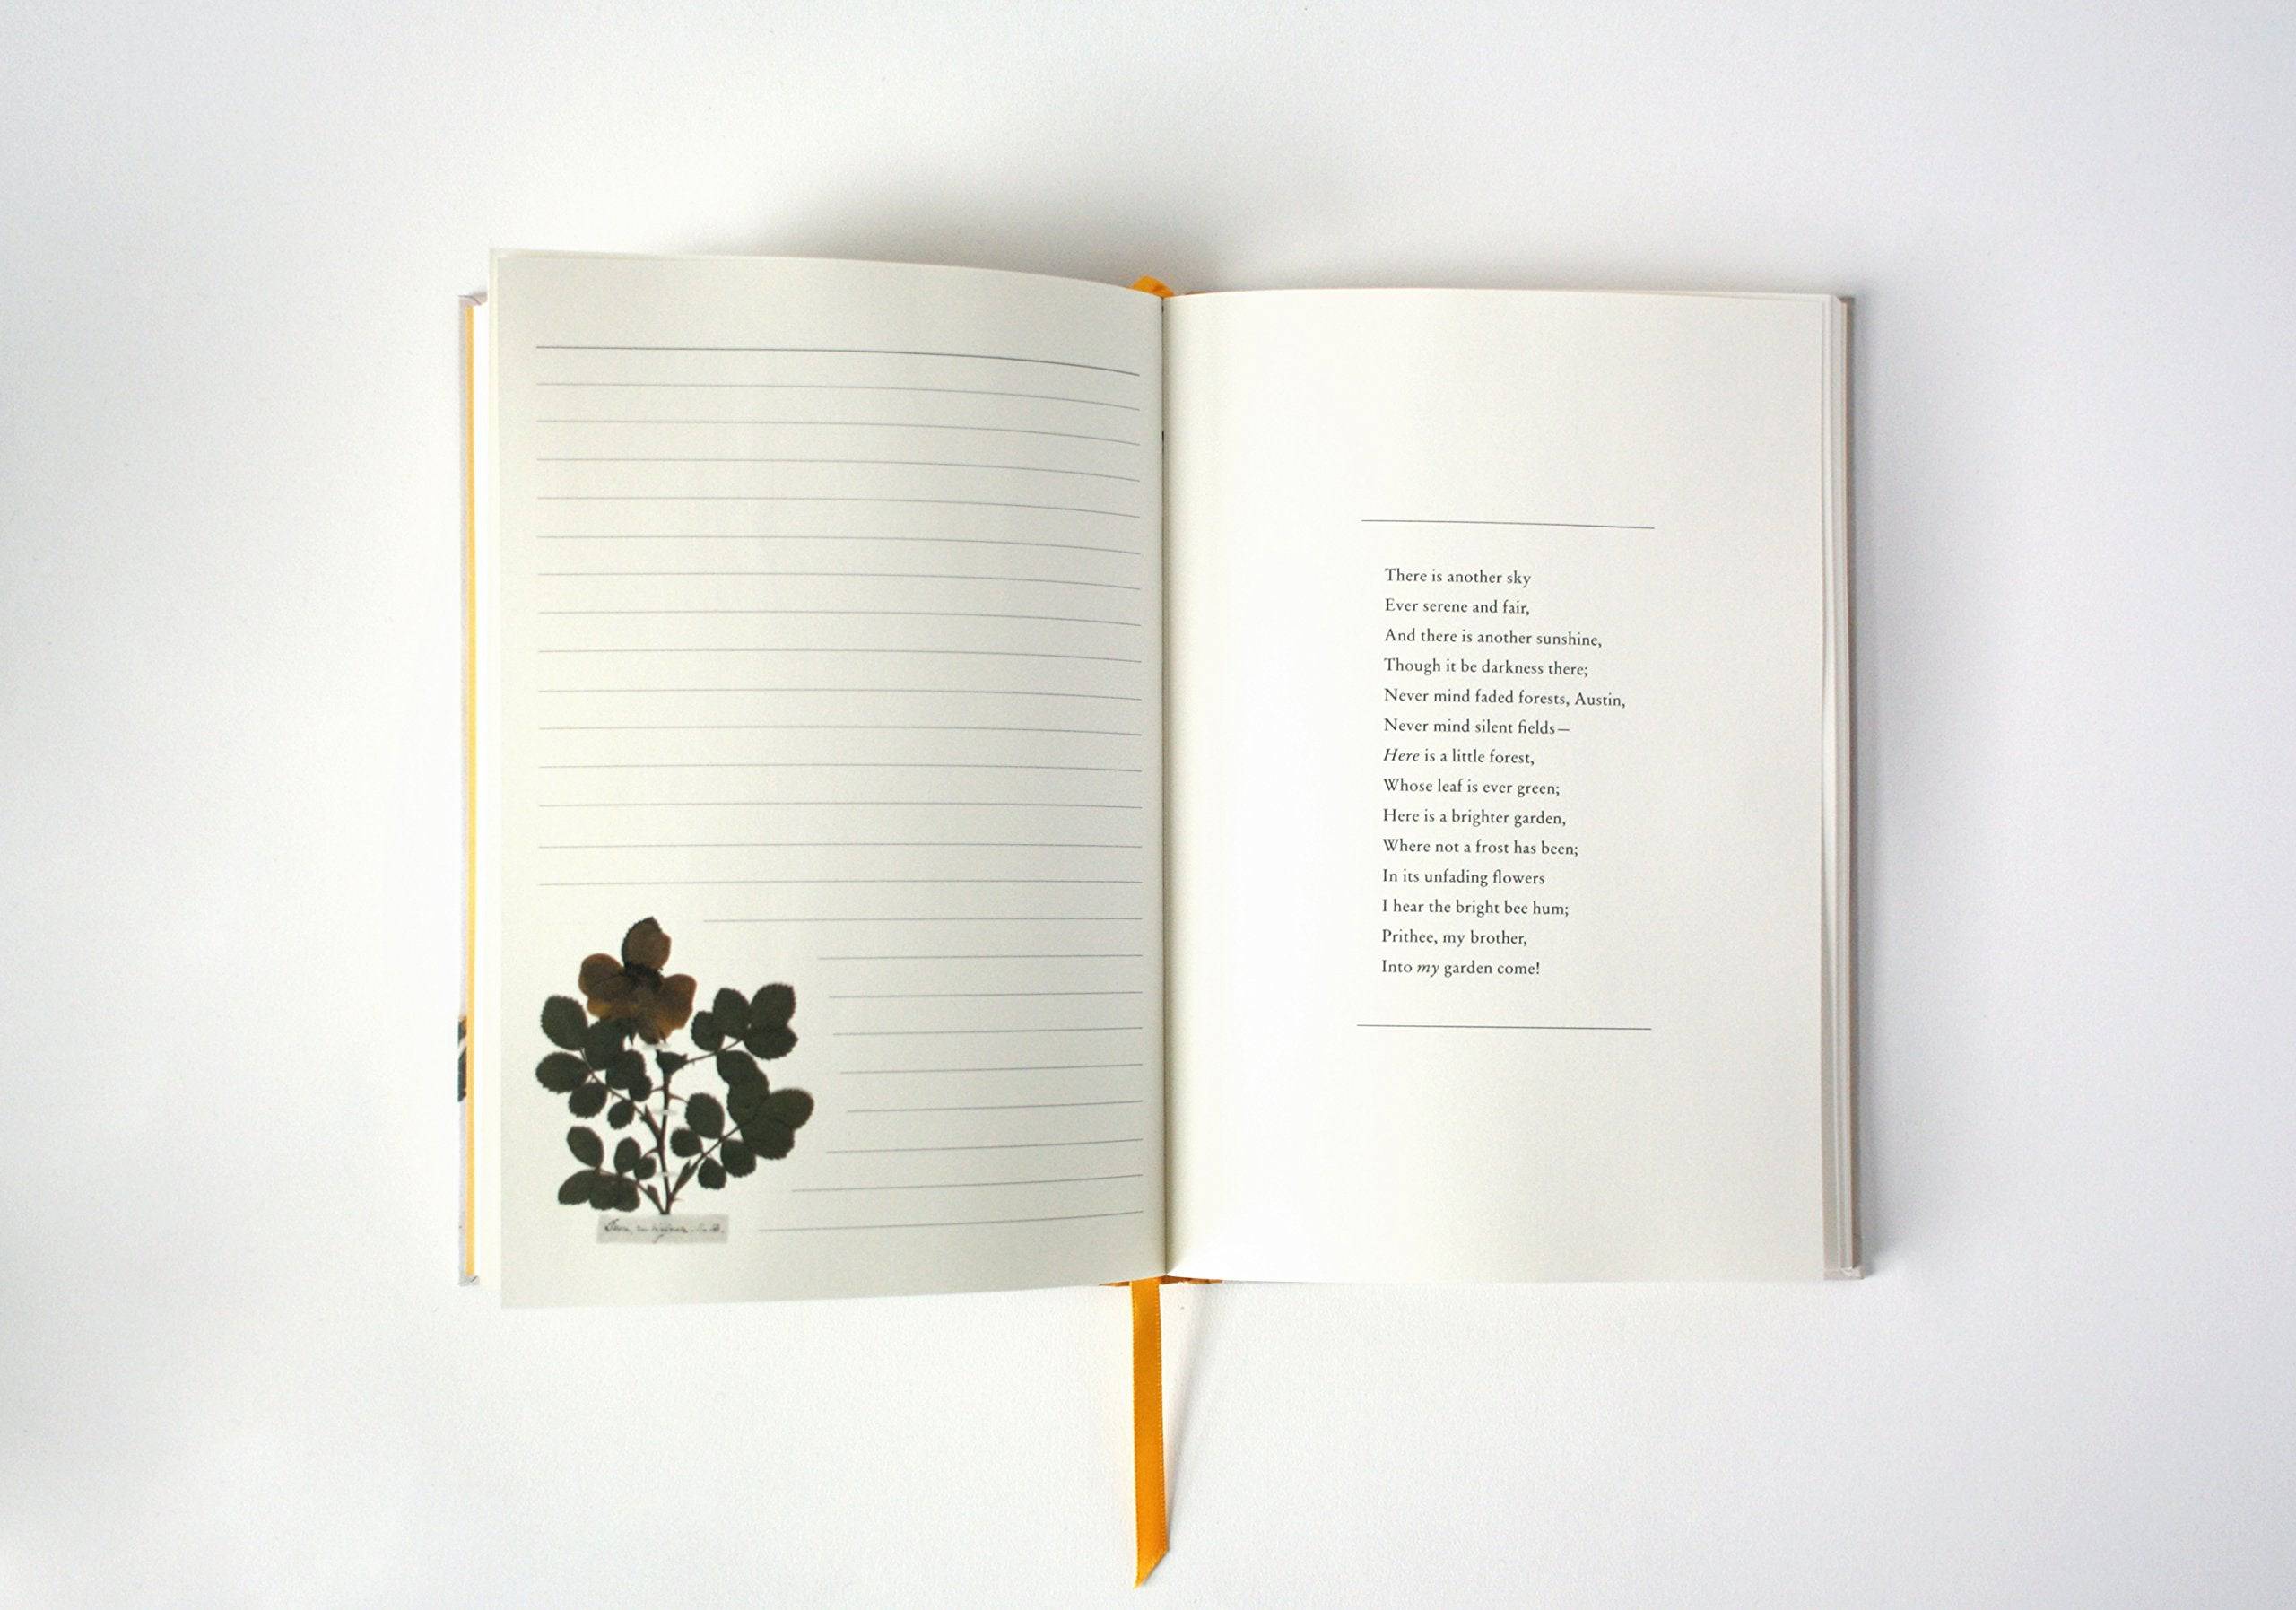 There is another sky
Ever serene and fair,
And there is another sunshine,
Though it be darkness there;
Never mind faded forests, Austin,
Never mind silent fields—
Here is a little forest,
Whose leaf is ever green;
Here is a brighter garden,
Where not a frost has been;
In its unfading flowers
I hear the bright bee hum;
Prithee, my brother,
Into my garden come!